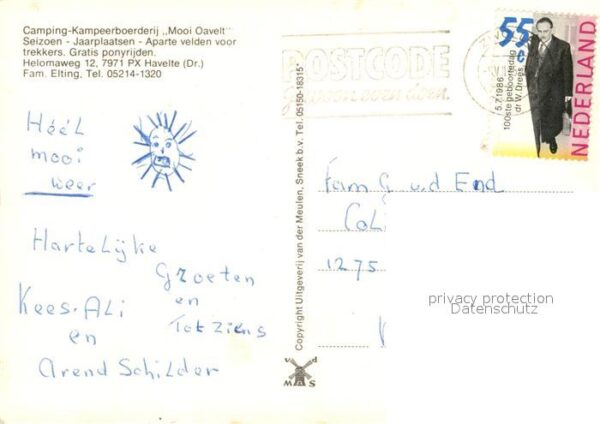 Camping-Kampeerboerderij ,,Mooi Oavelt"
Seizoen - Jaarplaatsen - Aparte velden voor
trekkers. Gratis ponyrijden.
Helomaweg 12, 7971 PX Havelte (Dr.)
Fam. Elting, Tel. 05214-1320
Héél
mooi
weer
Hartelijke
Groeten
en
Tot ziens
Kees-Ali
en
Arend Schilder
Copyright Uitgeverij van der Meulen, Sneek b.v. Tel. 05150-18315*
v d
M A S
POSTCODE
Gewoon even doen.
55
c
5.7.1986
100ste geboortedag
dr W. Drees
NEDERLAND
Fam G v.d End
Coli
1275
privacy protection
Datenschutz